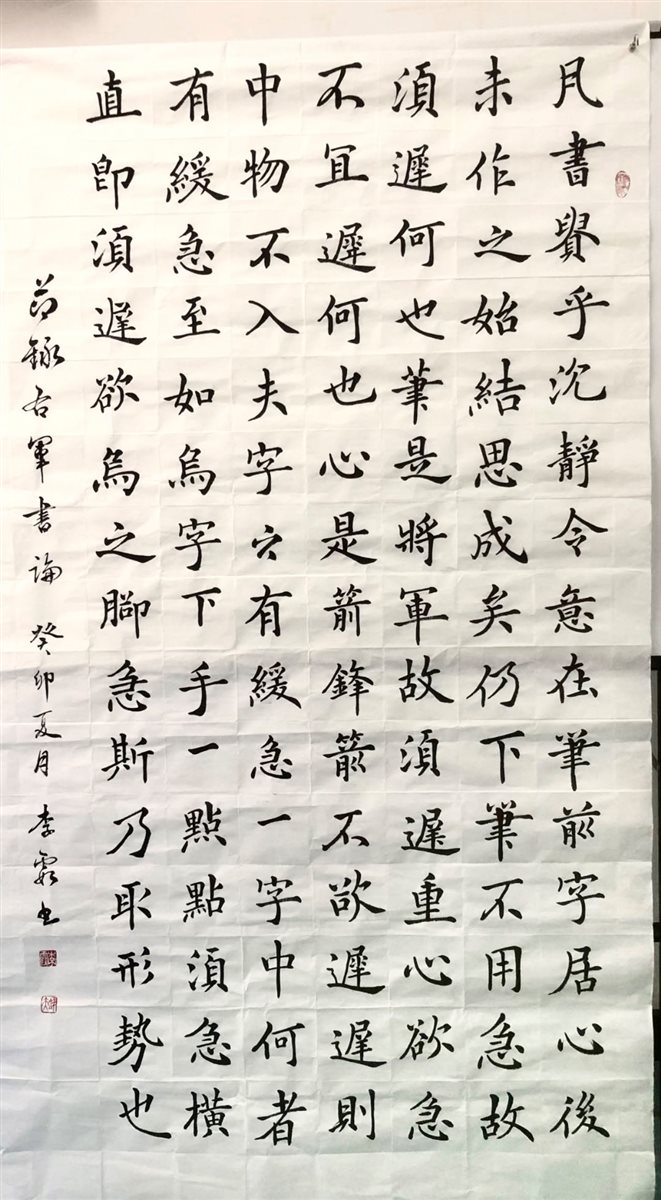 凡書貴乎沉靜令意在筆前字居心後
未作之始結思成矣仍下筆不用急故
須遲何也筆是將軍故須遲重心欲急
不宜遲何也心是箭鋒箭不欲遲遲則
中物不入夫字穴有緩急一字中何者
有緩急至如烏字下手一點點須急橫
直即須遲欲烏之腳急斯乃取形勢也
节録右軍書論 癸卯夏月 李霞书